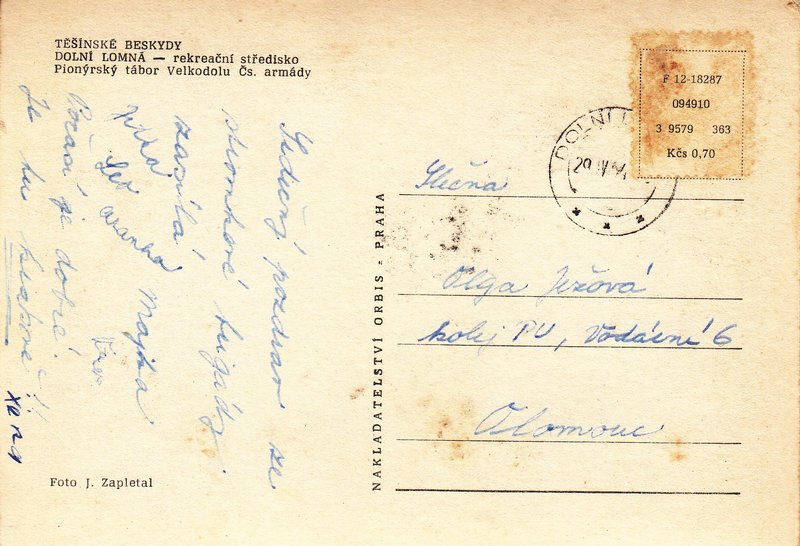 TĚŠÍNSKÉ BESKYDY
DOLNÍ LOMNÁ — rekreační středisko
Pionýrský tábor Velkodolu Čs. armády
Srdečný pozdrav ze
stromkové brigády
zasílá
Majka
Jitka
Počasí je dobré.
Je tu krásně!!
Foto J. Zapletal
NAKLADATELSTVÍ ORBIS - PRAHA
F 12-18287
094910
3 9579 363
Kčs 0,70
DOLNÍ
Slečna
Olga Ježová
kolej PU, Vodární 6
Olomouc